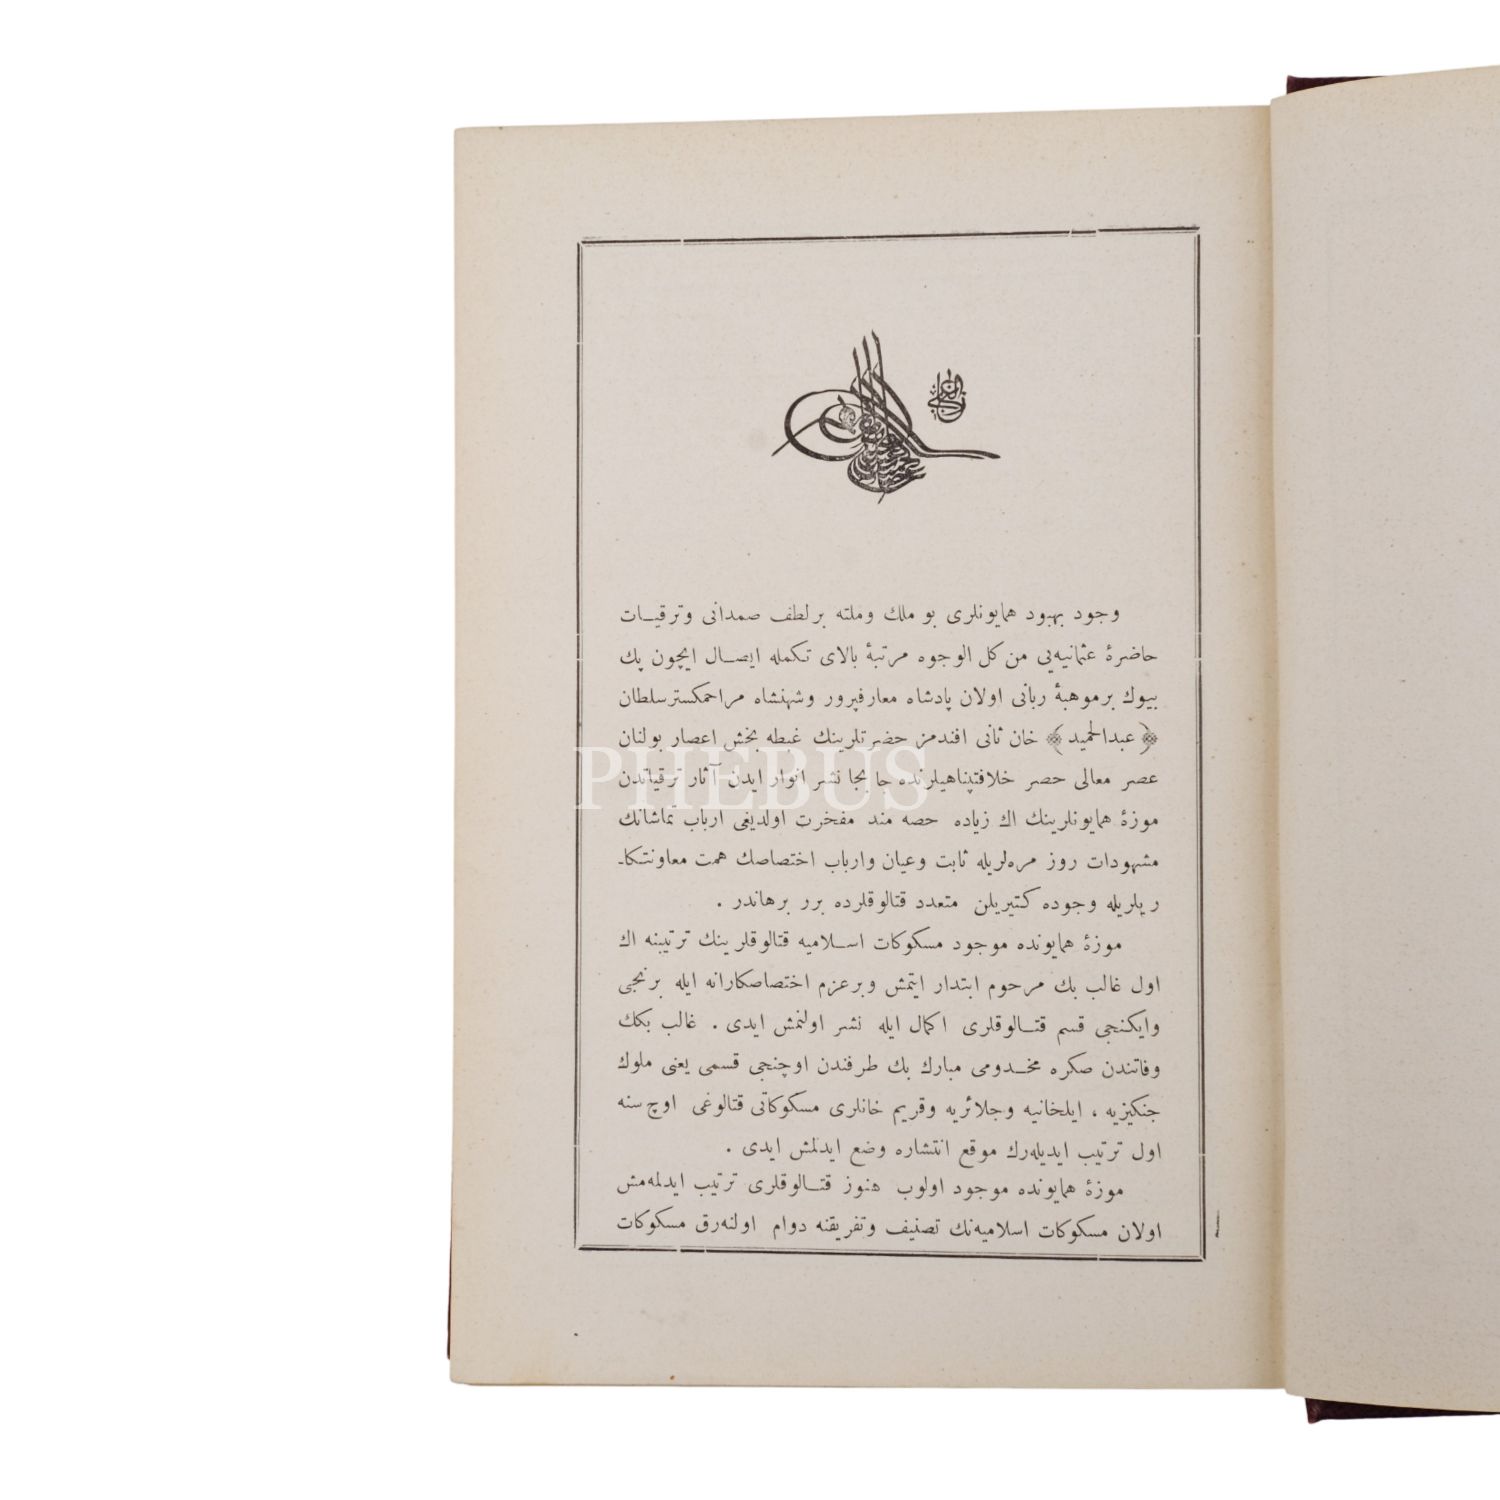 وجود بهبود همایونلری بو ملك وملته برلطف صمدانی وترقیات
حاضرهٔ عثمانیه‌یی من كل الوجوه مرتبهٔ بالای تكمله ایصال ایچون پك
بیوك برموهبهٔ ربانی اولان پادشاه معارفپرور وشهنشاه مراحمكسترسلطان
﴿ عبدالحمید ﴾ خان ثانی افندمز حضرتلرینك غبطه بخش اعصار بولنان
عصر معالی حصر خلافتپناهیلرنده جا بجا نشر انوار ایدن آثار ترقیاتدن
موزهٔ همایونلرینك اك زیاده حصه مند مفخرت اولدیغی ارباب تماشانك
مشهودات روز مره‌لریله ثابت وعیان وارباب اختصاصك همت معاونتكا-
ریلریله وجوده كتیریلن متعدد قتالوقلرده برر برهاندر .
موزهٔ همایونده موجود مسكوكات اسلامیه قتالوقلرینك ترتیبنه اك
اول غالب بك مرحوم ابتدار ایتمش وبرعزم اختصاصكارانه ایله برنجی
وایكنجی قسم قتالوقلری اكمال ایله نشر اولنمش ایدی . غالب بكك
وفاتندن صكره مخدومی مبارك بك طرفندن اوچنجی قسمی یعنی ملوك
جنكیزیه ، ایلخانیه وجلائریه وقریم خانلری مسكوكاتی قتالوغی اوچ سنه
اول ترتیب ایدیله‌رك موقع انتشاره وضع ایدلمش ایدی .
موزهٔ همایونده موجود اولوب هنوز قتالوقلری ترتیب ایدلمه‌مش
اولان مسكوكات اسلامیه‌نك تصنیف وتفریقنه دوام اولنه‌رق مسكوكات
PHEBUS